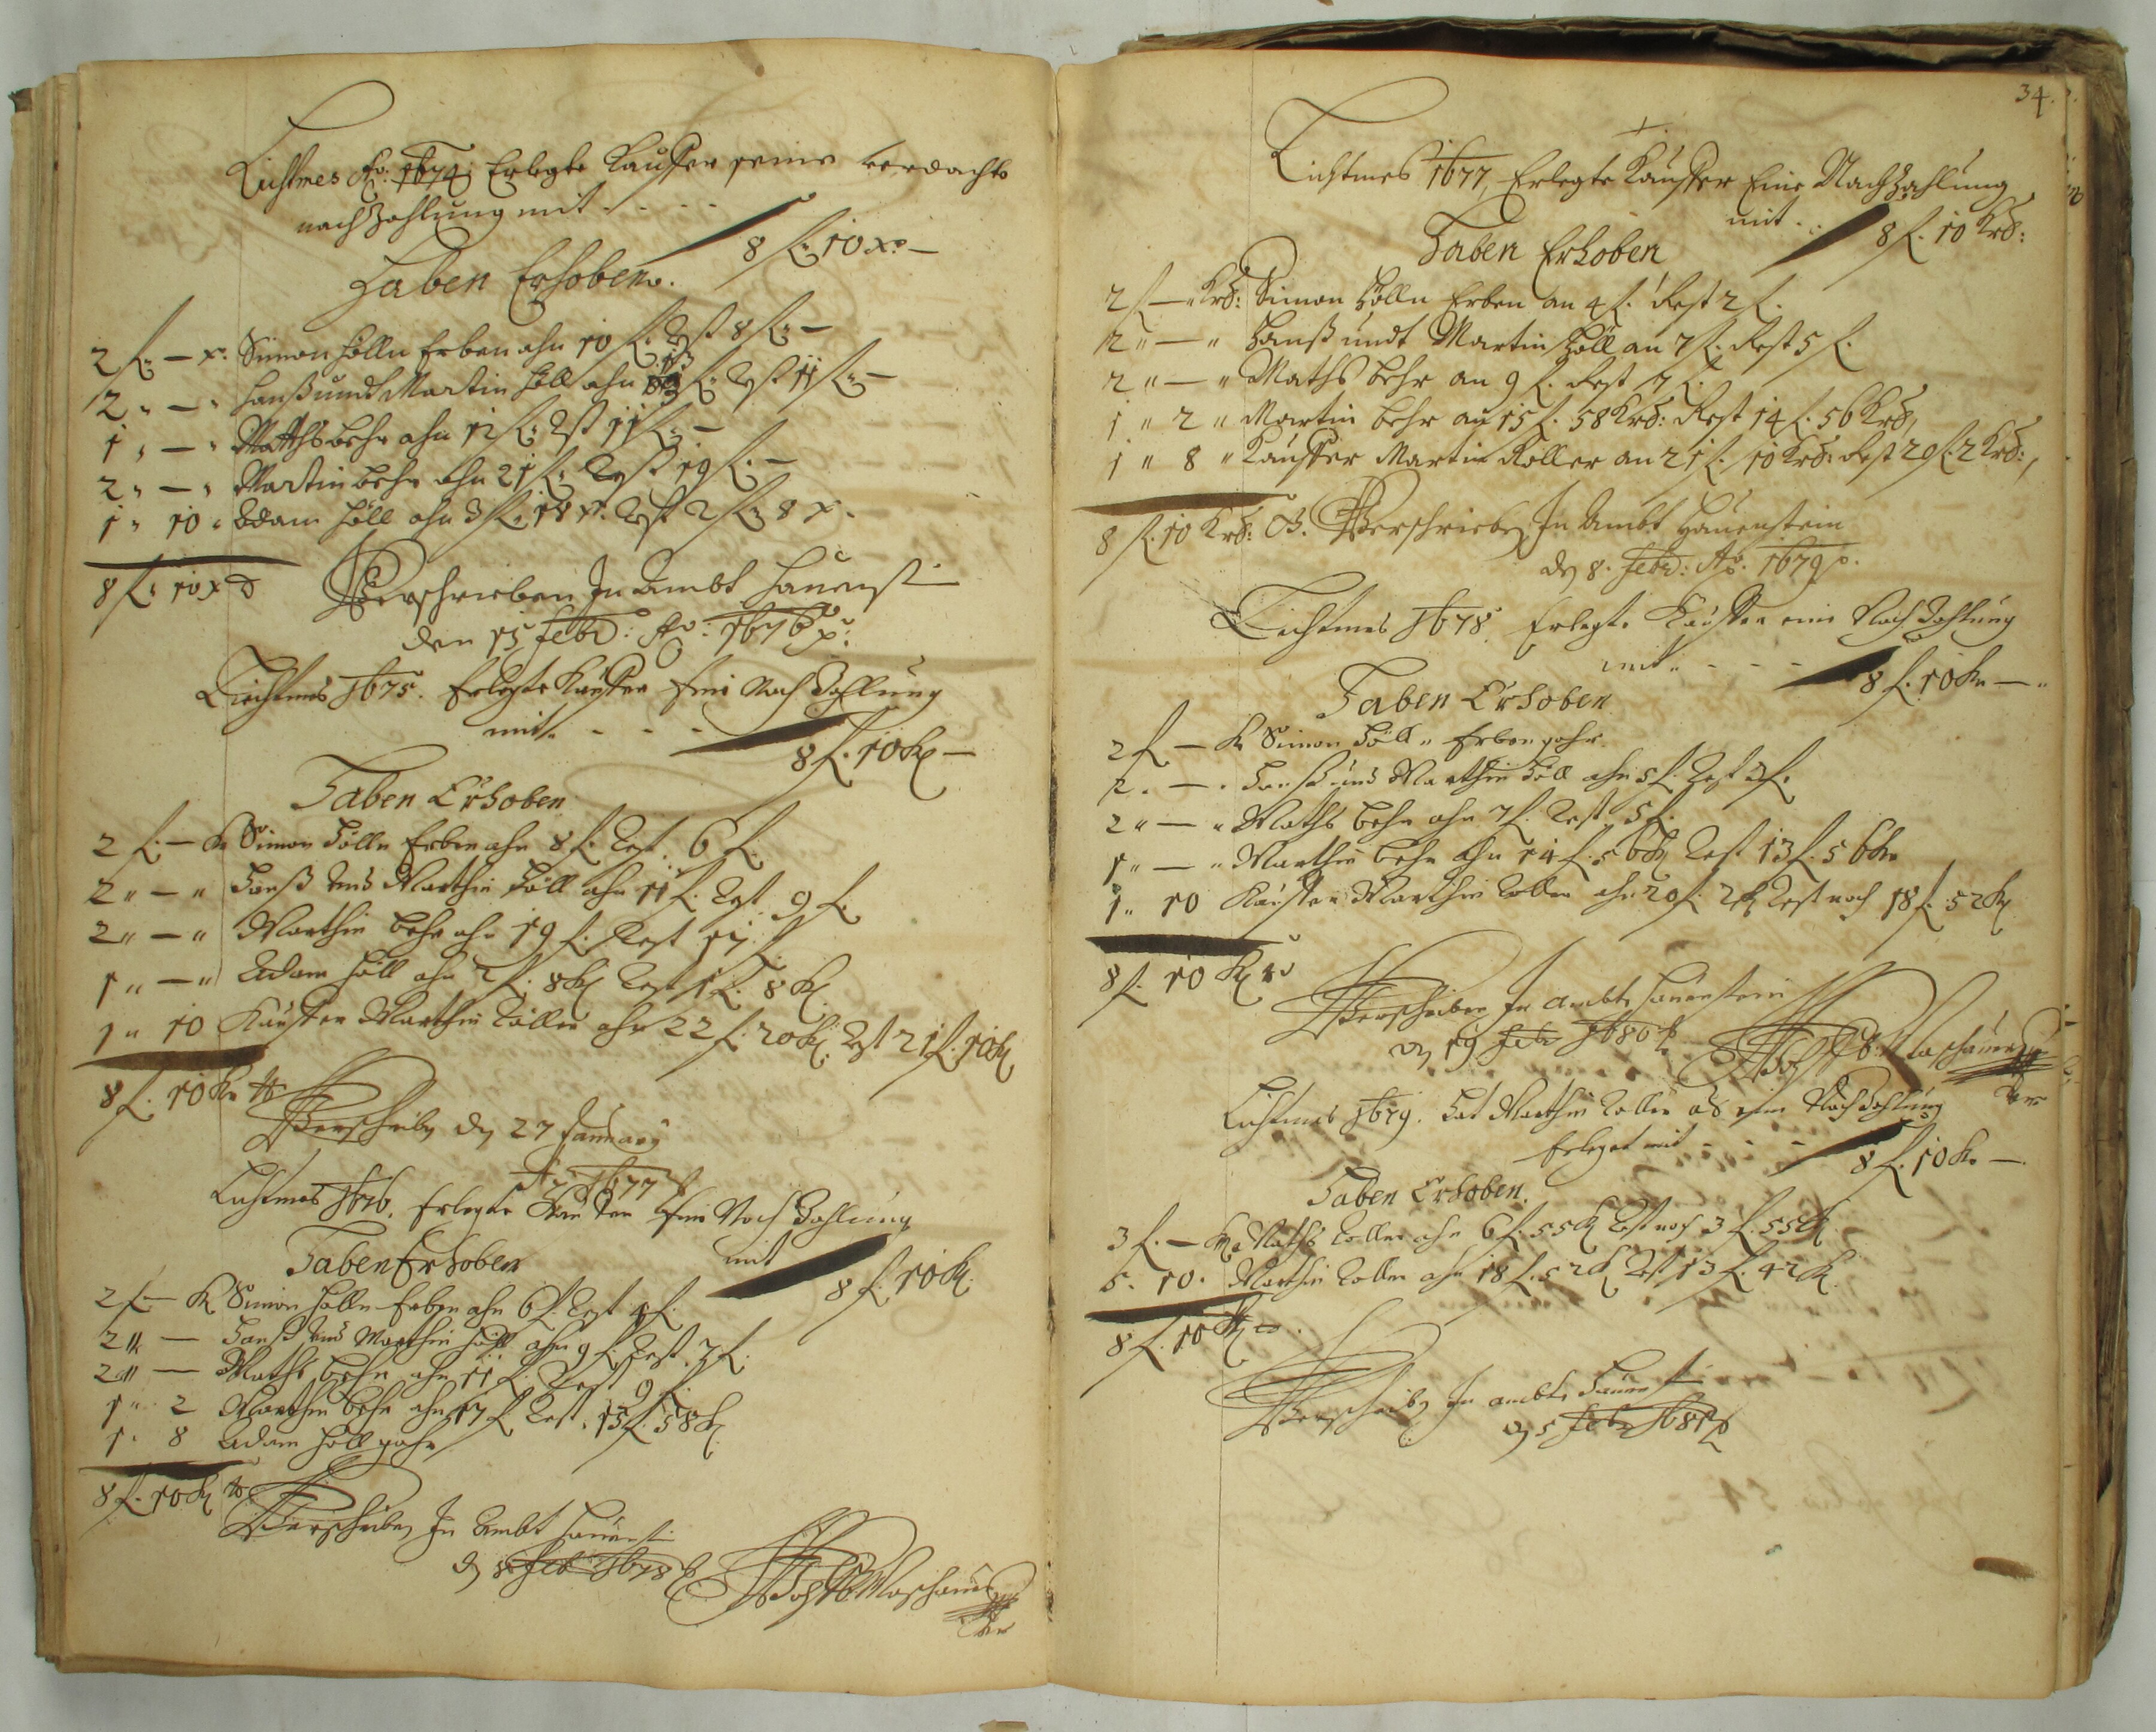 Lichtmes Ao: 1674: Erlegte Kauffer seine verdachte
nachzahlung mit - - - -
8 fl: 10 xr. —
Haben Erhoben.
2 fl: — x: Simon Höll Erben ahn 10 fl: Rest 8 fl: —
2 " — " Hanß undt Martin Höll ahn 13 fl: Rest 11 fl: —
1 " — " Mathß behr ahn 12 fl: Rest 11 fl: —
2 " — " Martin behr ahn 21 fl: Rest 19 fl: —
1 " 10 " Adam Höll ahn 3 fl: 18 x: Rest 2 fl: 8 x.
8 fl: 10 x
Verschrieben In Ambt Hauenst
den 15 Febr: Ao: 1676
Liechtmes 1675. Erlegte Kauffer seine Nach Zahlung
mit - - - -
8 fl. 10 K —
Haben Erhoben
2 fl. — K Simon Hölln Erben ahn 8 fl. Rest 6 fl.
2 " — " Hanß und Marthin Höll ahn 11 fl. Rest 9 fl.
2 " — " Marthin behr ahn 19 fl. Rest 17 fl.
1 " — " Adam Höll ahn 2 fl. 8 K Rest 1 fl. 8 K
1 " 10 Kauffer Marthin Roller ahn 22 fl. 20 K. Rest 21 fl. 10 K
8 fl. 10 K
Verschrieben den 27 January
Ao 1677
Lichtmes 1676. Erlegte Kauffer seine Nach Zahlung
mit 8 fl. 10 K.
Haben Erhoben
2 fl — K Simon Hölln Erben ahn 6 fl. Rest 4 fl.
2 " — Hanß und Marthin Höll ahn 9 fl. Rest 7 fl.
2 " — Mathß behr ahn 11 fl. Rest 9 fl.
1 " 2 Marthin behr ahn 17 fl. Rest. 15 fl. 58 K
1 " 8 Adam Höll gahr
8 fl. 10 K
Verschrieben In Ambt Hauenst
den 8 Feb 1678
34.
Lichtmes 1677, Erlegte Kauffer Eine Nachzahlung
mit - - 8 fl. 10 Krd:
Haben Erhoben
2 fl — Krd: Simon Hölln Erben an 4 fl. Rest 2 fl.
2 " — " Hanß undt Martin Höll an 7 fl. Rest 5 fl.
2 " — " Mathß behr an 9 fl. Rest 7 fl.
1 " 2 " Martin behr an 15 fl. 58 Krd: Rest 14 fl. 56 Krd,
1 " 8 " Kauffer Martin Roller an 21 fl. 10 Krd: Rest 20 fl. 2 Krd:,
8 fl. 10 Krd: Verschrieben In Ambt Hauenstein
den 8. Febr: Ao. 1679
Liechtmes 1678. Erlegte Kauffer eine Nach Zahlung
mit - - - 8 fl. 10 Kr —
Haben Erhoben
2 fl — K Simon Höll " Erben gahr
2 . — . Hanß und Marthin Höll ahn 5 fl. Rest 3 fl.
2 " — " Mathß behr ahn 7 fl. Rest 5 fl.
1 " — " Marthin behr ahn 14 fl. 56 K Rest 13 fl. 56 Kr
1 " 10 Kauffer Marthin Roller ahn 20 fl. 2 K Rest noch 18 fl. 52 K
8 fl. 10 K
Verschrieben In Ambte Hauenstein
den 19 Feb 1680
Lichtmes 1679. Hat Marthin Roller als eine Nach Zahlung
Erleget mit - - - 8 fl. 10 Kr —
Haben Erhoben.
3 fl. — K Mathß Roller ahn 6 fl. 55 K Rest noch 3 fl. 55 K
5 . 10 . Marthin Roller ahn 18 fl. 52 K Rest 13 fl. 42 K
8 fl. 10 K
Verschrieben In ambte Hauenst
den 5 Feb 1681